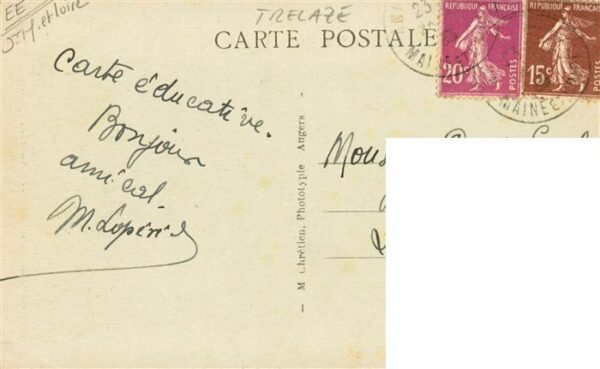 EE
TRELAZÉ
et Loire
CARTE POSTALE
RÉPUBLIQUE FRANÇAISE
20c
POSTES
RÉPUBLIQUE FRANÇAISE
15c
POSTES
23
MAINE
Carte éducative.
Bonjour
amical.
M.
— M Chrétien, Phototypie Angers —